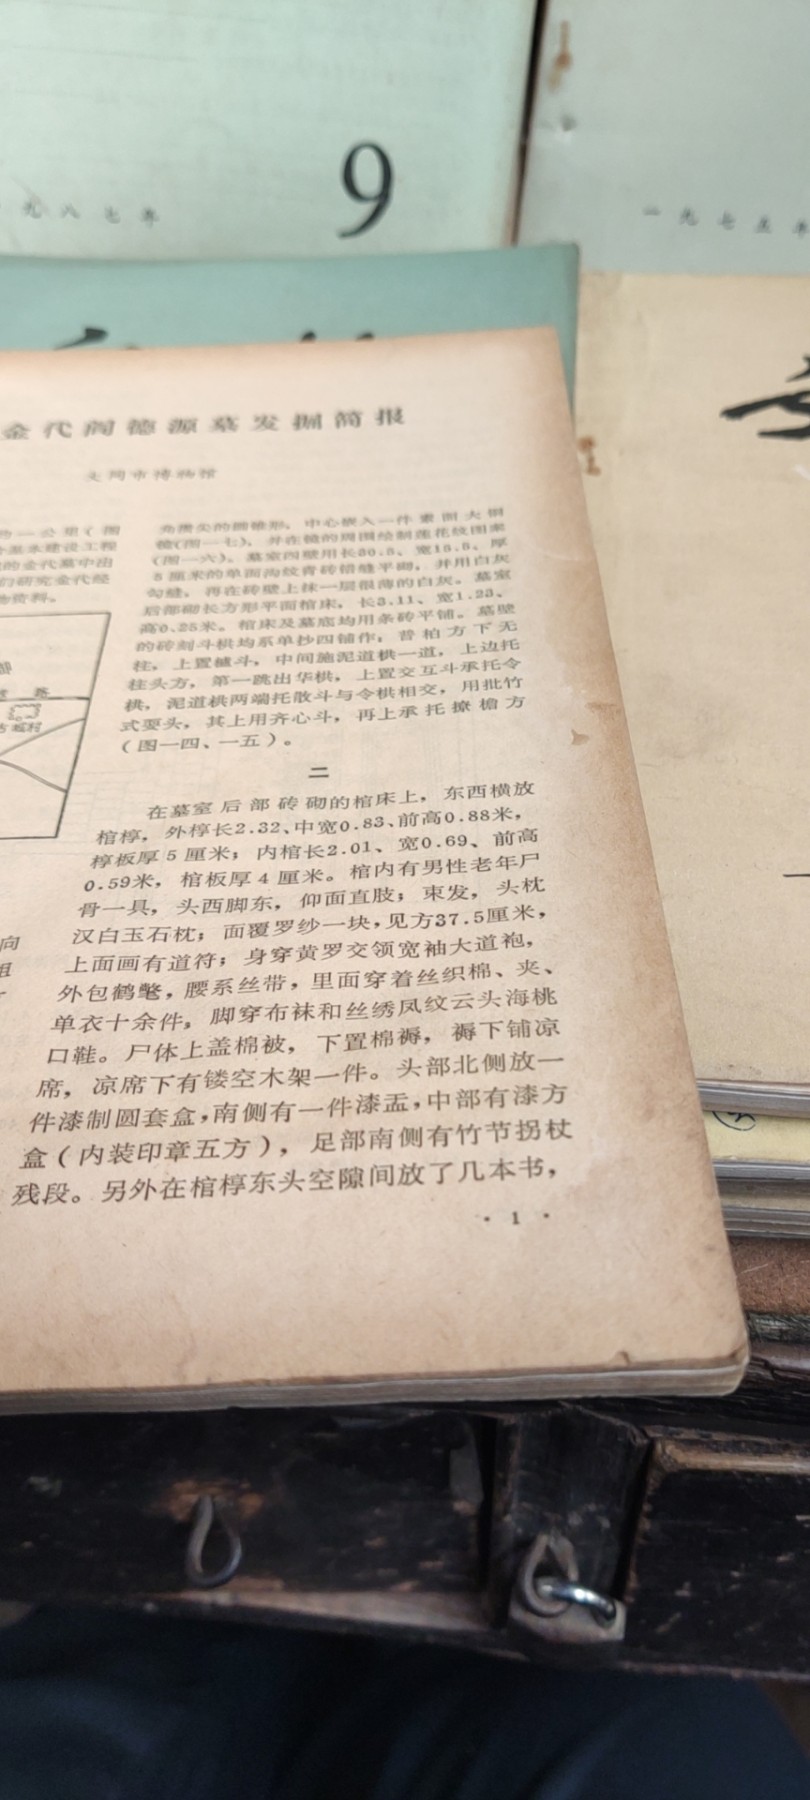 九八七年
9
一九七五年
金代阎德源墓发掘简报
大同市博物馆
的一公里(图
基本建设工程
的金代墓中出
们研究金代经
物资料。
路
古城村
向
组
角攒尖的圆锥形，中心嵌入一件素面大铜
镜(图一七)，并在镜的周围绘制莲花纹图案
(图一六)。墓室四壁用长30.5、宽15.5、厚
5厘米的单面沟纹青砖错缝平砌，并用白灰
勾缝，再在砖壁上抹一层很薄的白灰。墓室
后部砌长方形平面棺床，长3.11、宽1.23、
高0.25米。棺床及墓底均用条砖平铺。墓壁
的砖刻斗栱均系单抄四铺作；普柏方下无
柱，上置栌斗，中间施泥道栱一道，上边托
柱头方，第一跳出华栱，上置交互斗承托令
栱，泥道栱两端托散斗与令栱相交，用批竹
式耍头，其上用齐心斗，再上承托撩檐方
(图一四、一五)。
二
在墓室后部砖砌的棺床上，东西横放
棺椁，外椁长2.32、中宽0.83、前高0.88米，
椁板厚5厘米；内棺长2.01、宽0.69、前高
0.59米，棺板厚4厘米。棺内有男性老年尸
骨一具，头西脚东，仰面直肢；束发，头枕
汉白玉石枕；面覆罗纱一块，见方37.5厘米，
上面画有道符；身穿黄罗交领宽袖大道袍，
外包鹤氅，腰系丝带，里面穿着丝织棉、夹、
单衣十余件，脚穿布袜和丝绣凤纹云头海桃
口鞋。尸体上盖棉被，下置棉褥，褥下铺凉
席，凉席下有镂空木架一件。头部北侧放一
件漆制圆套盒，南侧有一件漆盂，中部有漆方
盒(内装印章五方)，足部南侧有竹节拐杖
残段。另外在棺椁东头空隙间放了几本书，
· 1 ·